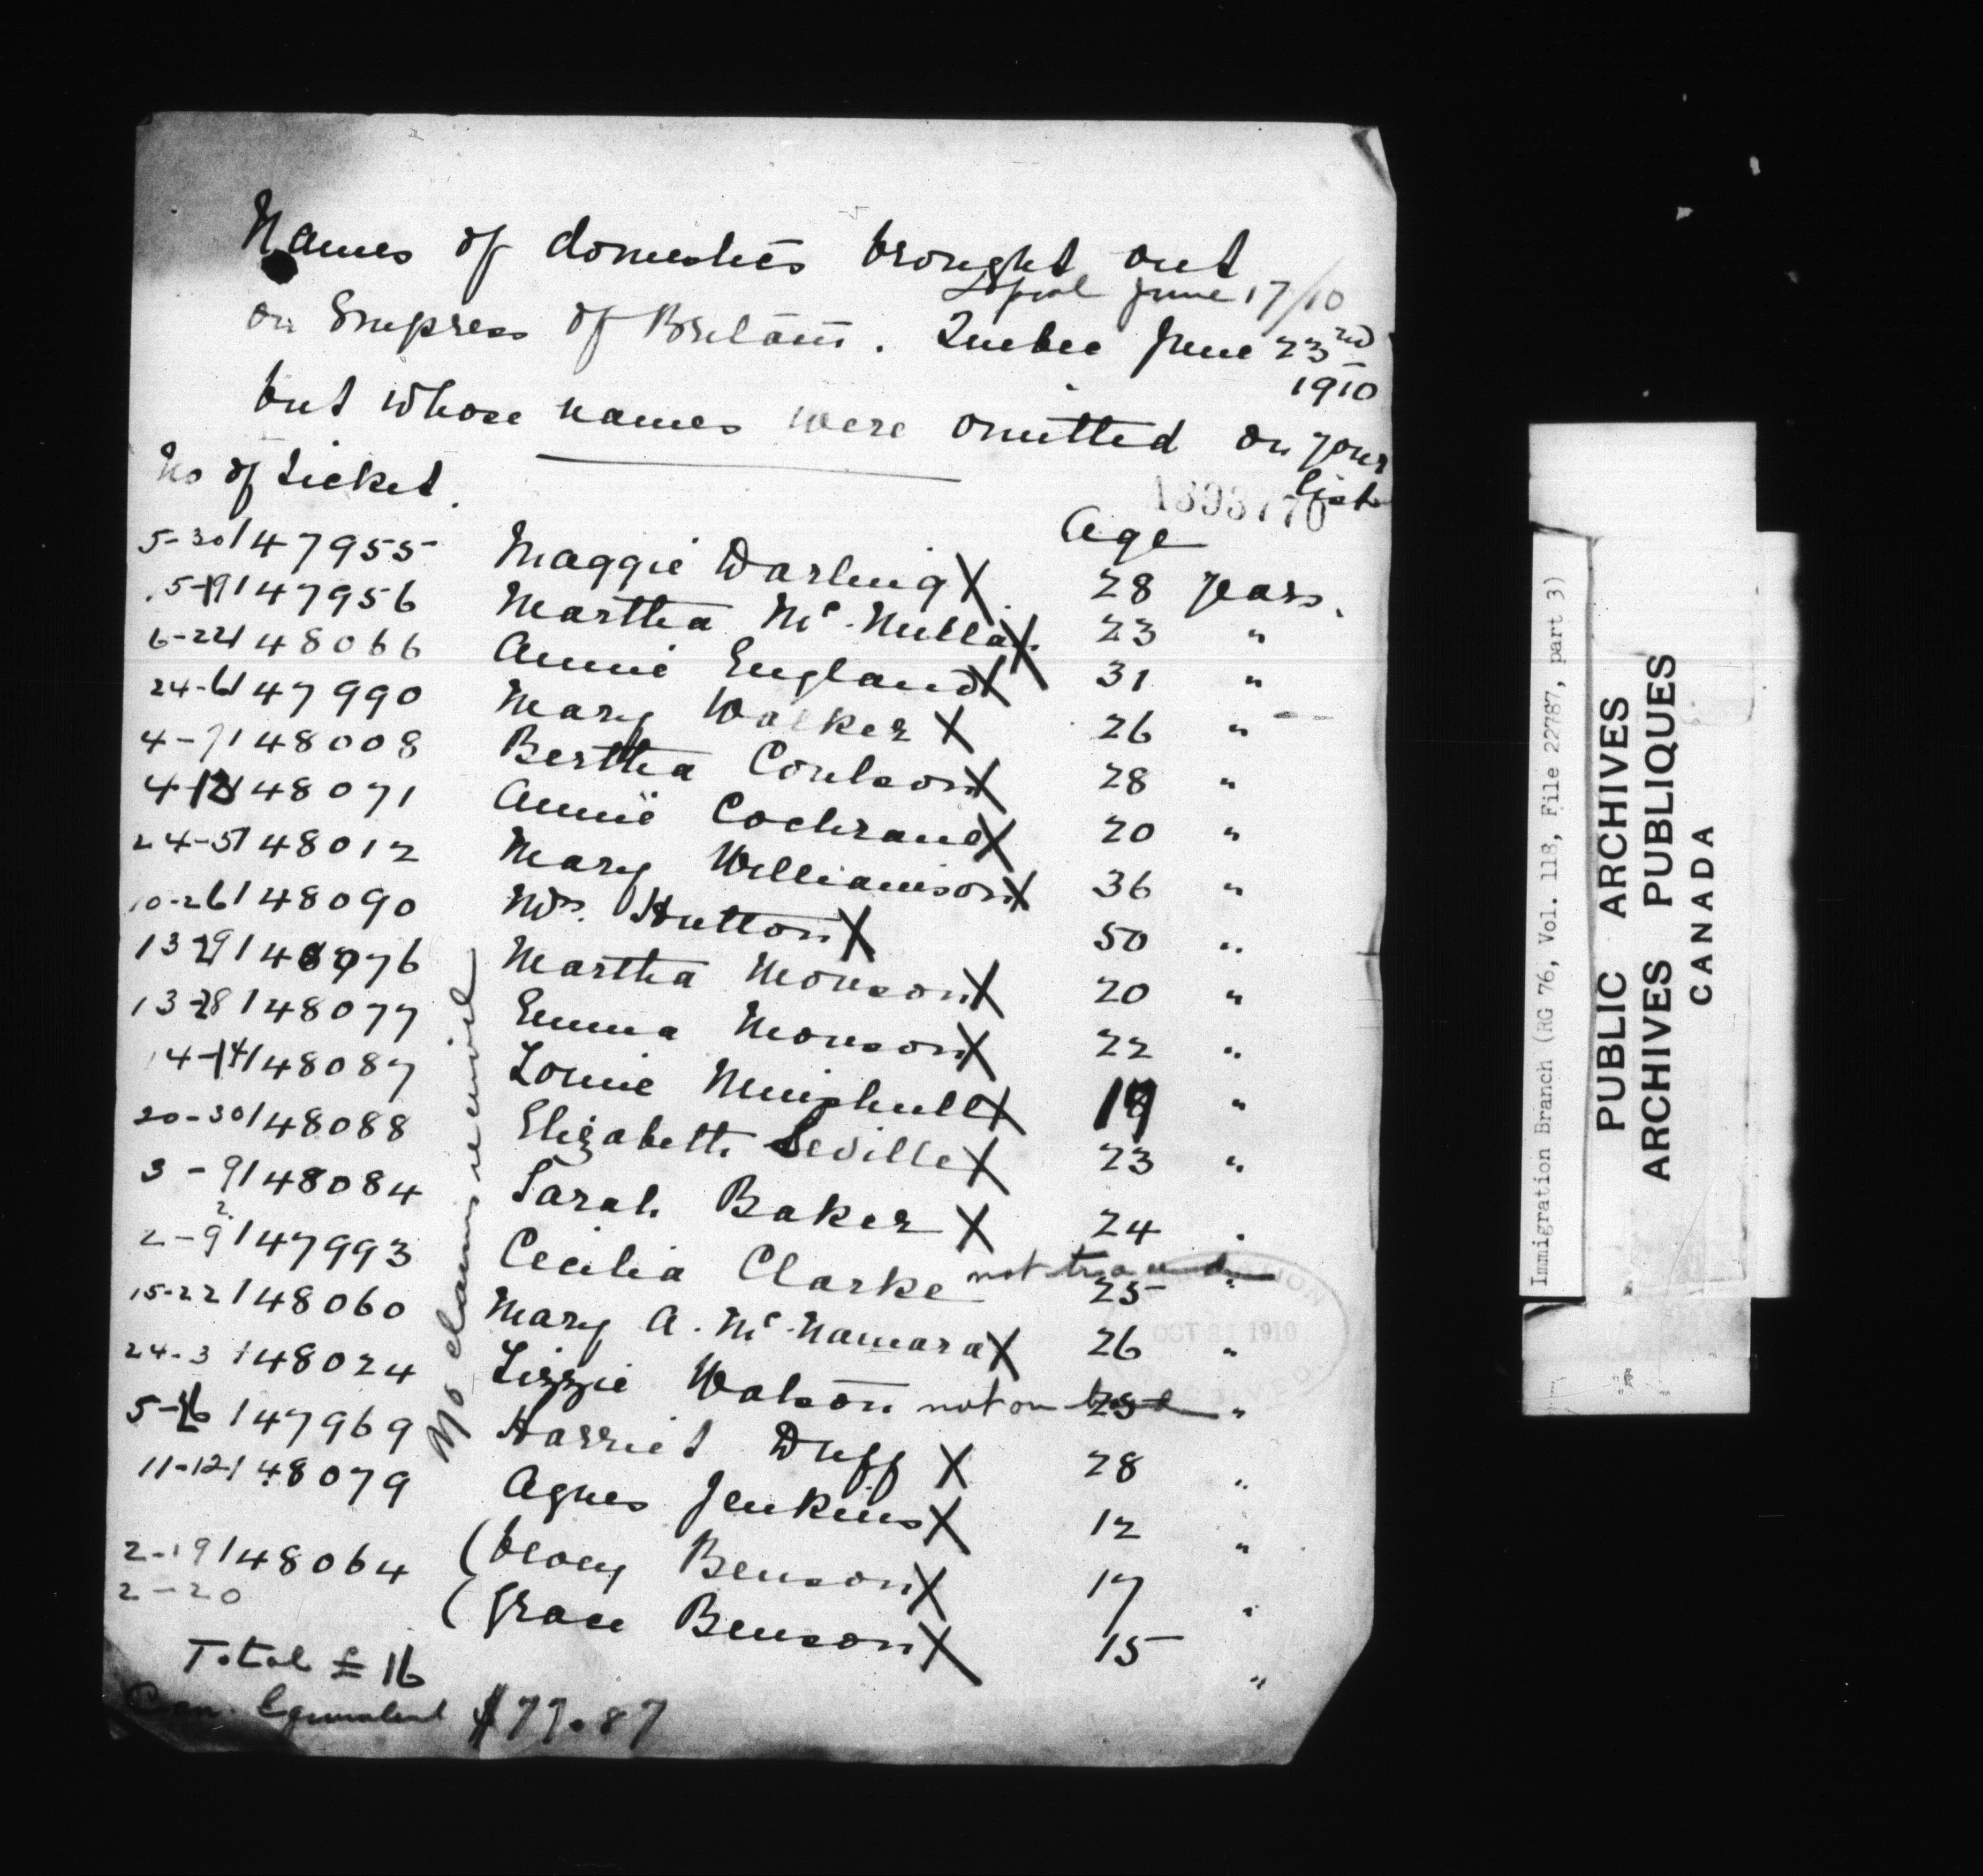 Names of domestics brought out
L'pool June 17/10
on Empress of Britain. Quebec June 23rd
1910
but whose names were omitted on your
list
No of ticket.
1393770
Age
5-30/47955 Maggie Darling X 28 years.
5-19/47956 Martha Mc. X 23 "
6-22/48066 Annie England X 31 "
24-6/47990 Mary Walker X 26 "
4-7/48008 Bertha Coulson X 28 "
4-12/48071 Annie Cochrane X 20 "
24-5/48012 Mary Williamson X 36 "
10-26/48090 Mrs. Hutton X 50 "
13-29/48076 Martha Monson X 20 "
13-28/48077 Emma Monson X 22 "
14-14/48087 Louie Minshull X "
20-30/48088 Elizabeth Seville X 23 "
3-9/48084 Sarah Baker X 24 "
2-9/47993 Cecilia Clarke not 25 "
15-22/48060 Mary A. McNamara X 26 "
24-3/48024 Lizzie Watson not on "
5-/47969 Harriet Duff X 28 "
11-12/48079 Agnes Jenkins X 12 "
2-19/48064 ( Benson X 17 "
2-20 (Grace Benson X 15 "
No claims received
Total £16
Can. Equivalent $77.87
OCT 31 1910
Immigration Branch (RG 76, Vol. 118, File 22787, part 3)
PUBLIC ARCHIVES
ARCHIVES PUBLIQUES
CANADA